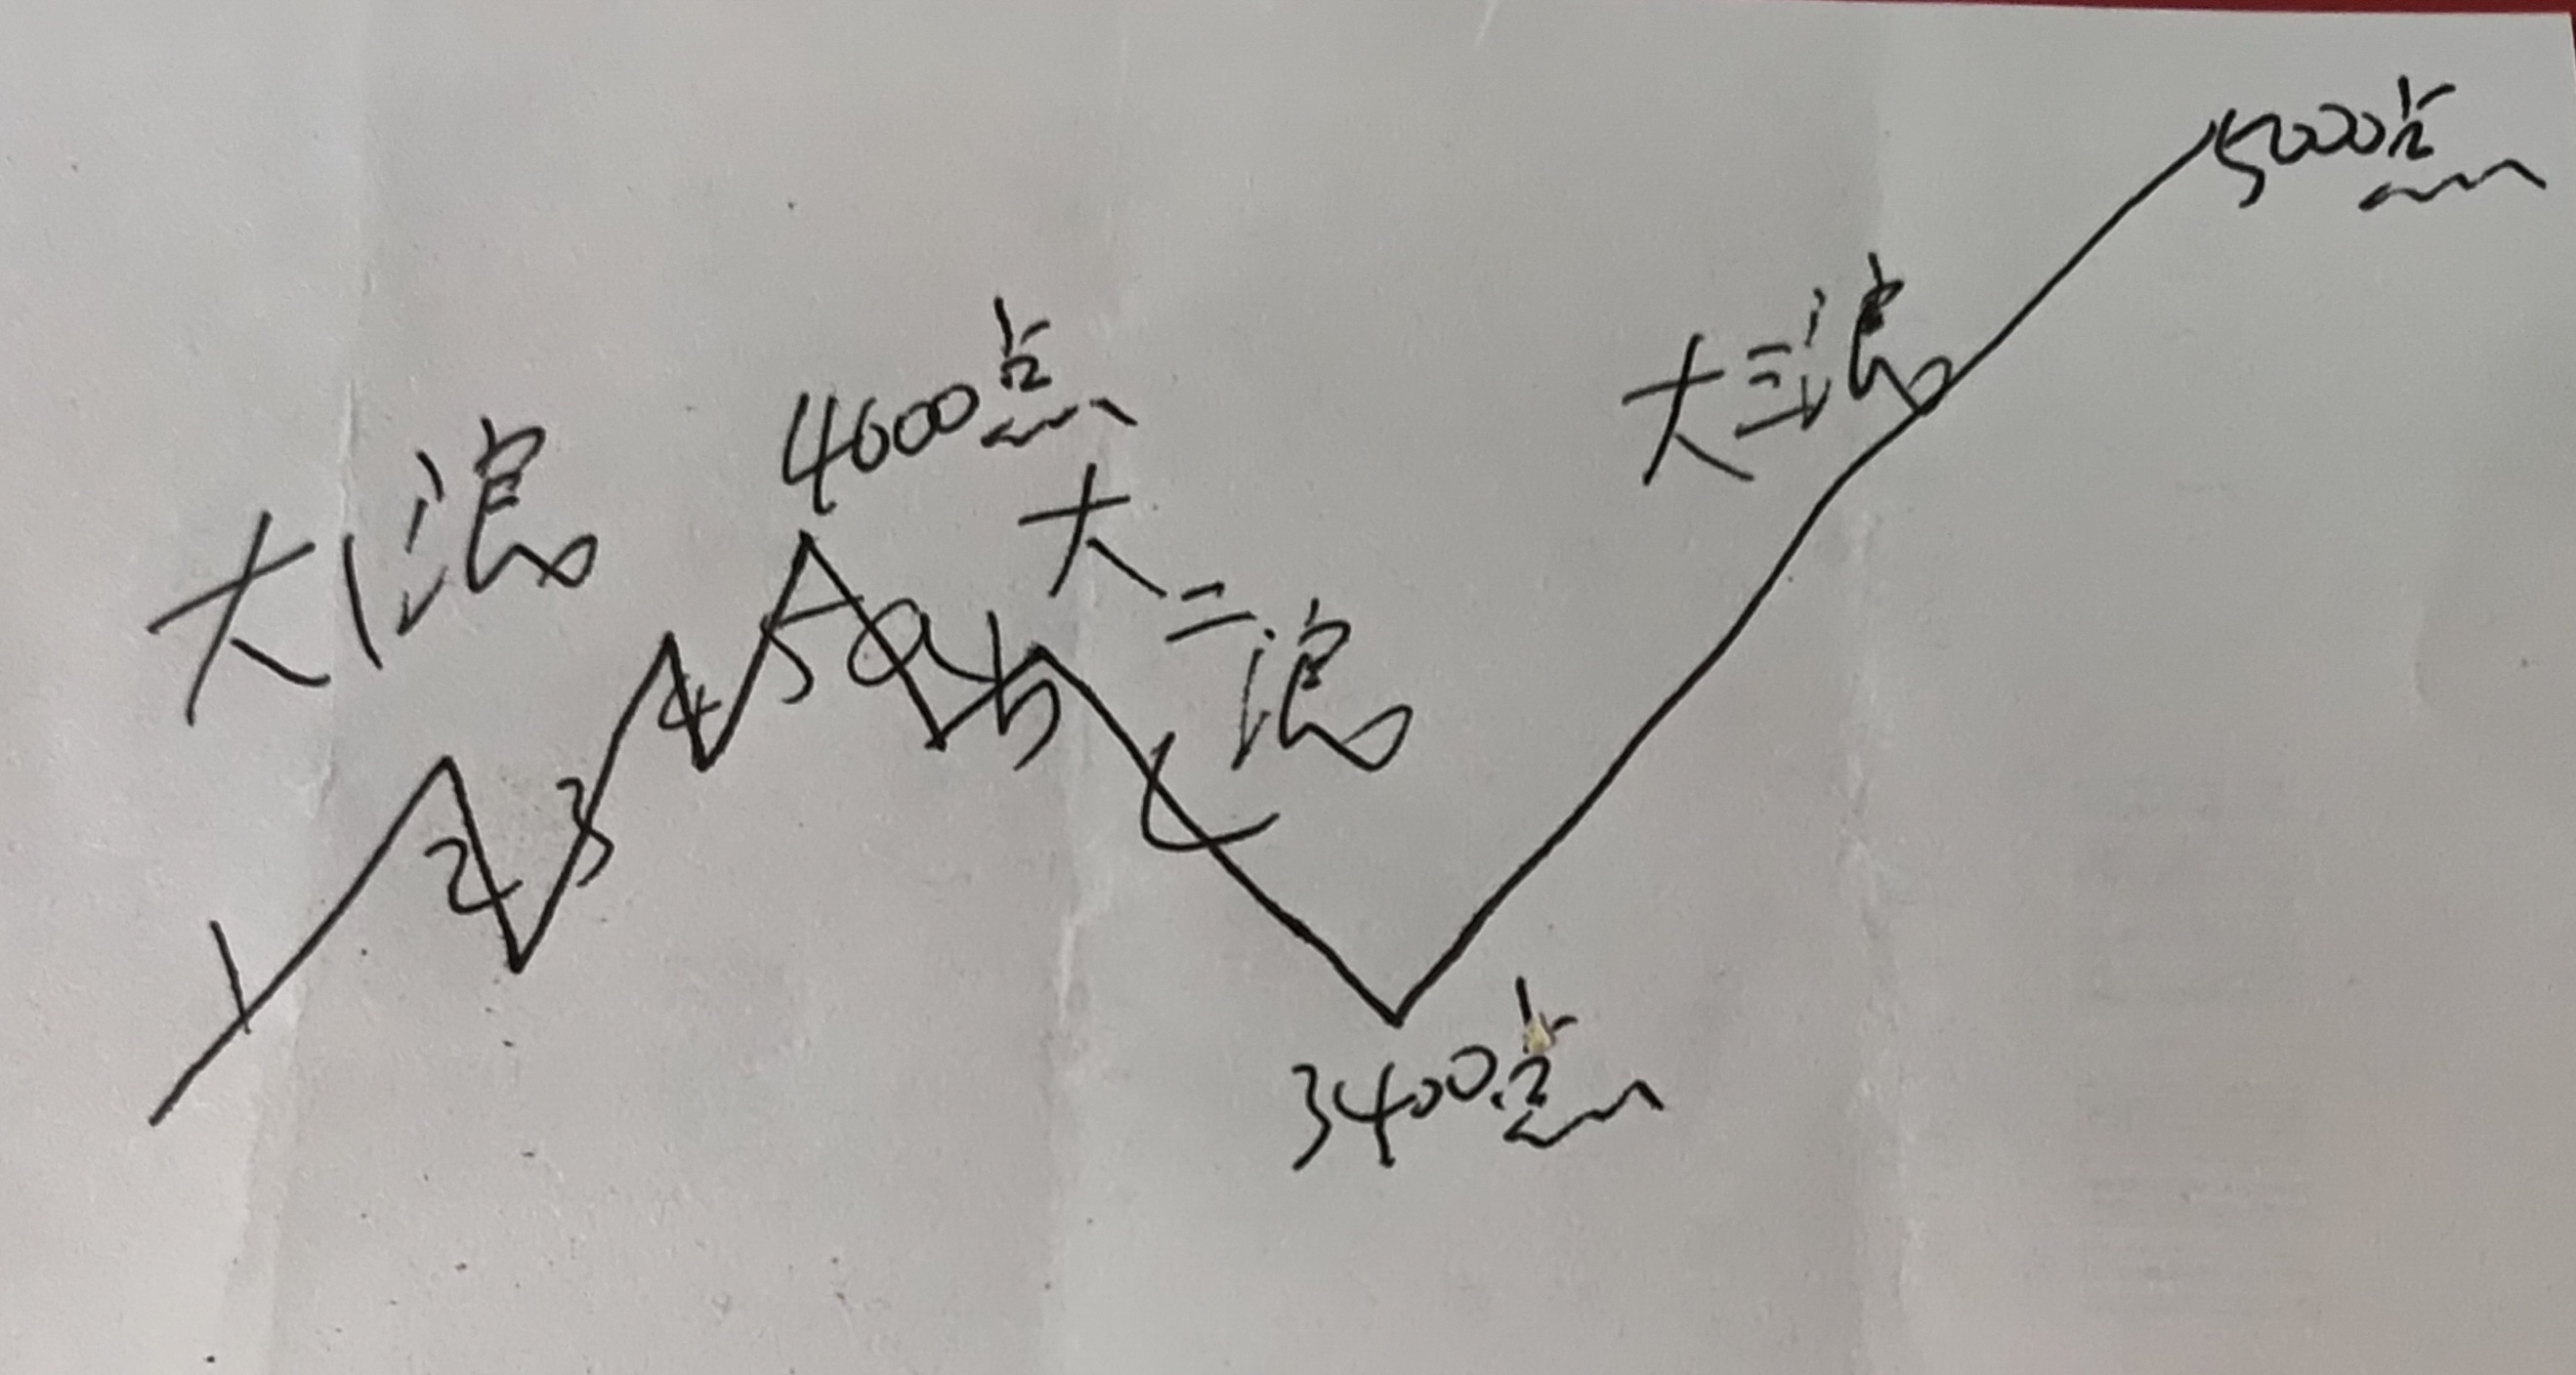 大1浪
4000点
大二浪
大三浪
5000点
1 2 3 4 5 a b c
3400点